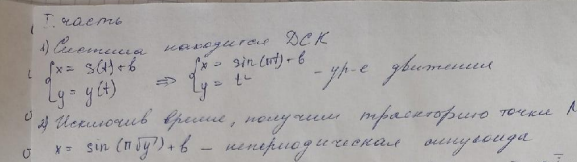 I. часть
1) Система находится ДСК
{x = s(t) + b ⇒ {x = sin(πt) + b
{y = y(t) {y = t² – ур-е движения
2) Исключив время, получим траекторию точки М
x = sin(π√y) + b – непериодическая синусоида